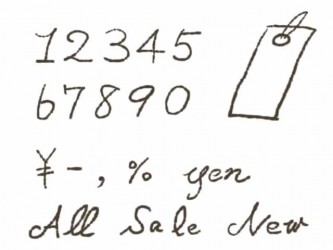 12345
67890
¥-, % yen
All Sale New